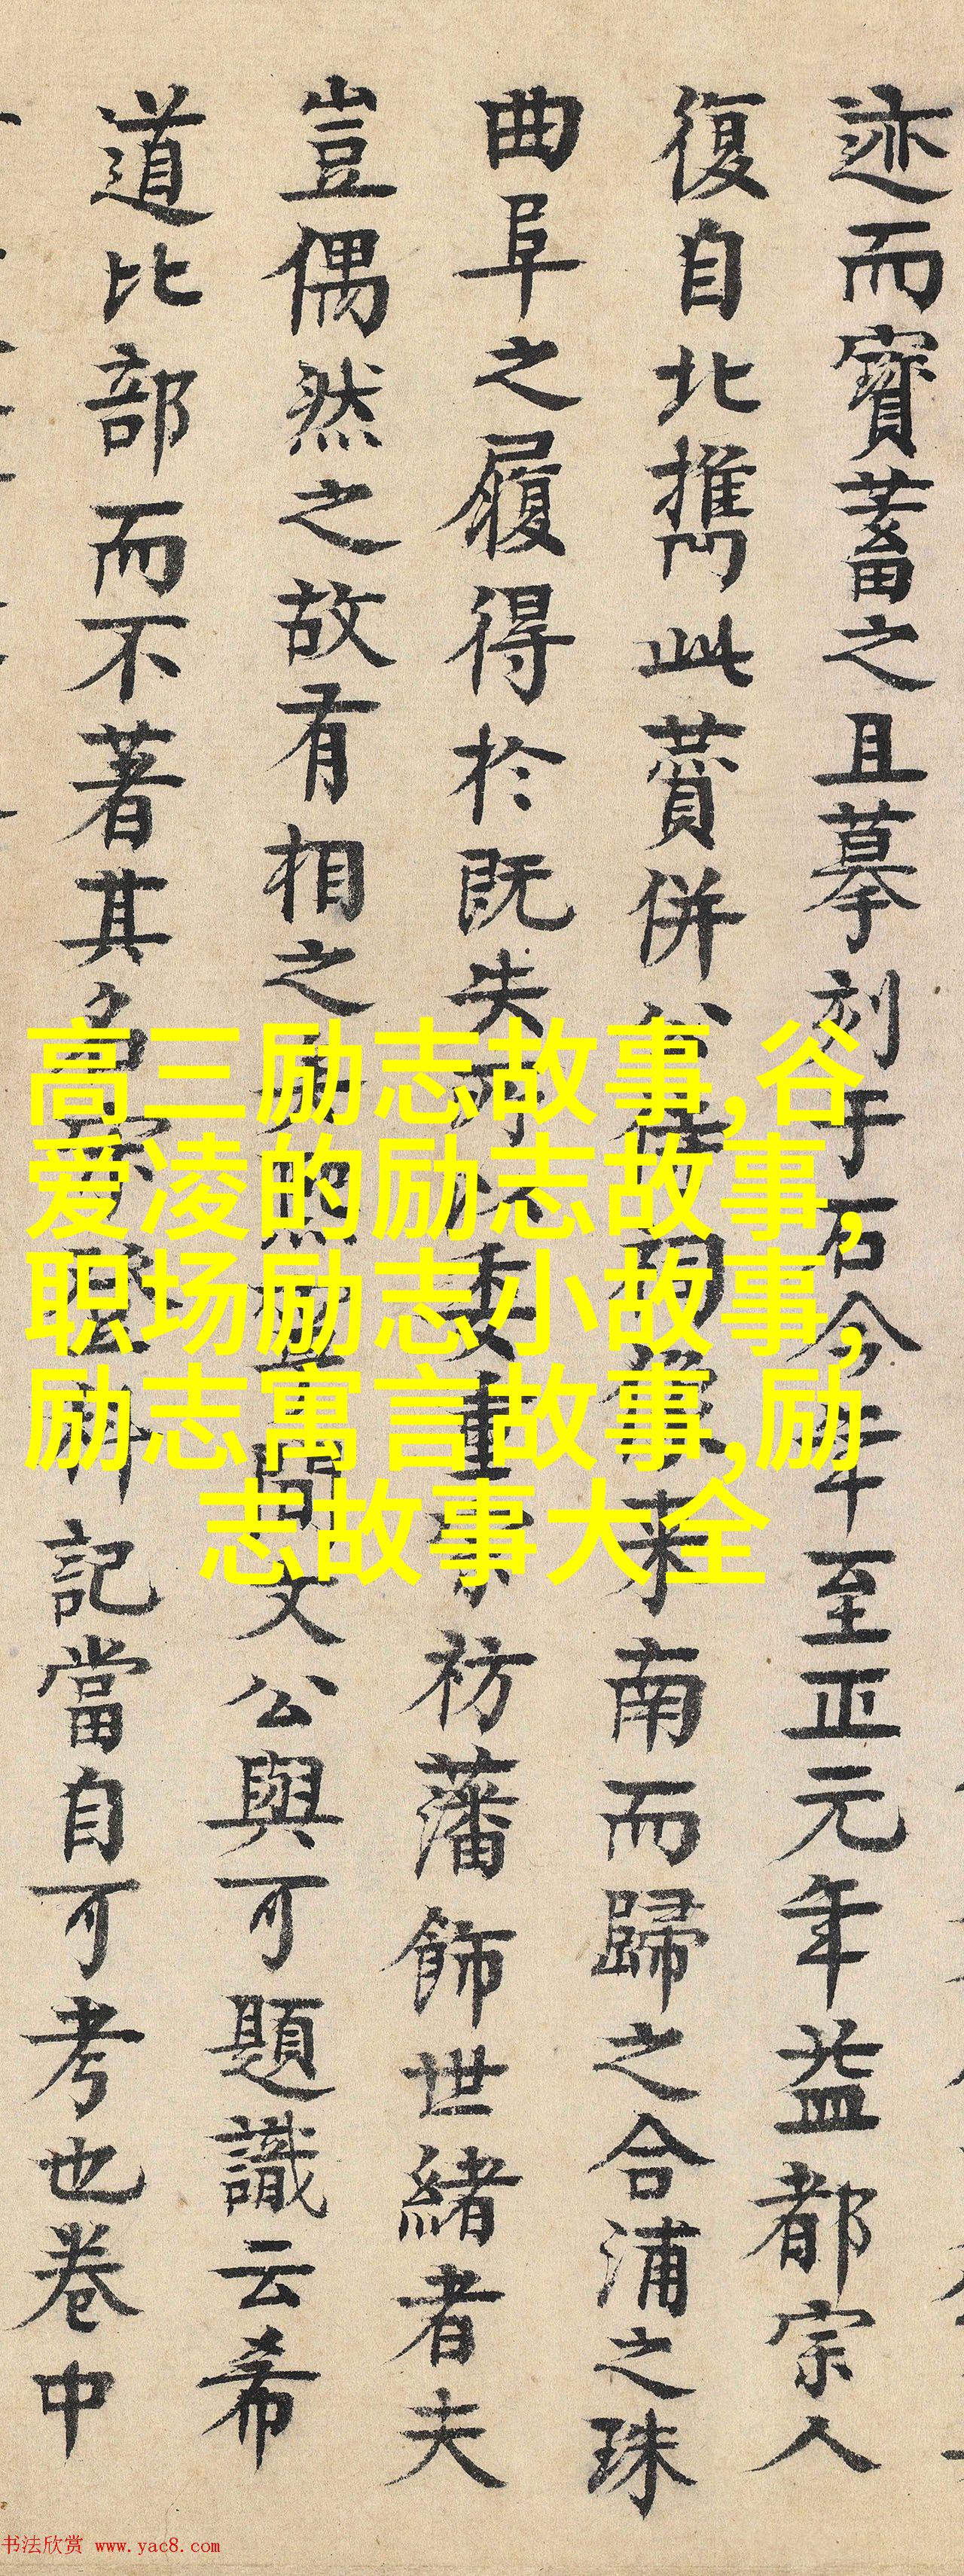 迹而寳蓄之且摹刻于石今年至正元年益都宗人
復自北攜此蕢併
南而歸之合浦之珠
曲阜之履得於既失
委重
祊藩飾世緒者夫
豈偶然之故有相之
文公與可題識云希
道比部而不著其名
記當自可考也卷中
高三励志故事,谷
爱凌的励志故事,
职场励志小故事,
励志寓言故事,励
志故事大全
书法欣赏 www.yac8.com